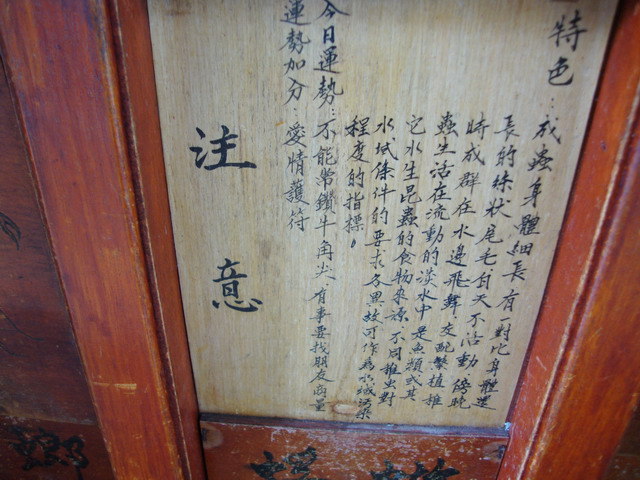 特色：成蟲身體細長有一對比身體還
長的絲狀尾毛白天不活動傍晚
時成群在水邊飛舞交配繁殖稚
蟲生活在流動的淡水中是魚類或其
它水生昆蟲的食物來源不同稚虫對
水域條件的要求各異故可作為水域污染
程度的指標。
今日運勢：不能常鑽牛角尖、有事要找朋友商量
運勢加分：愛情護符
注意